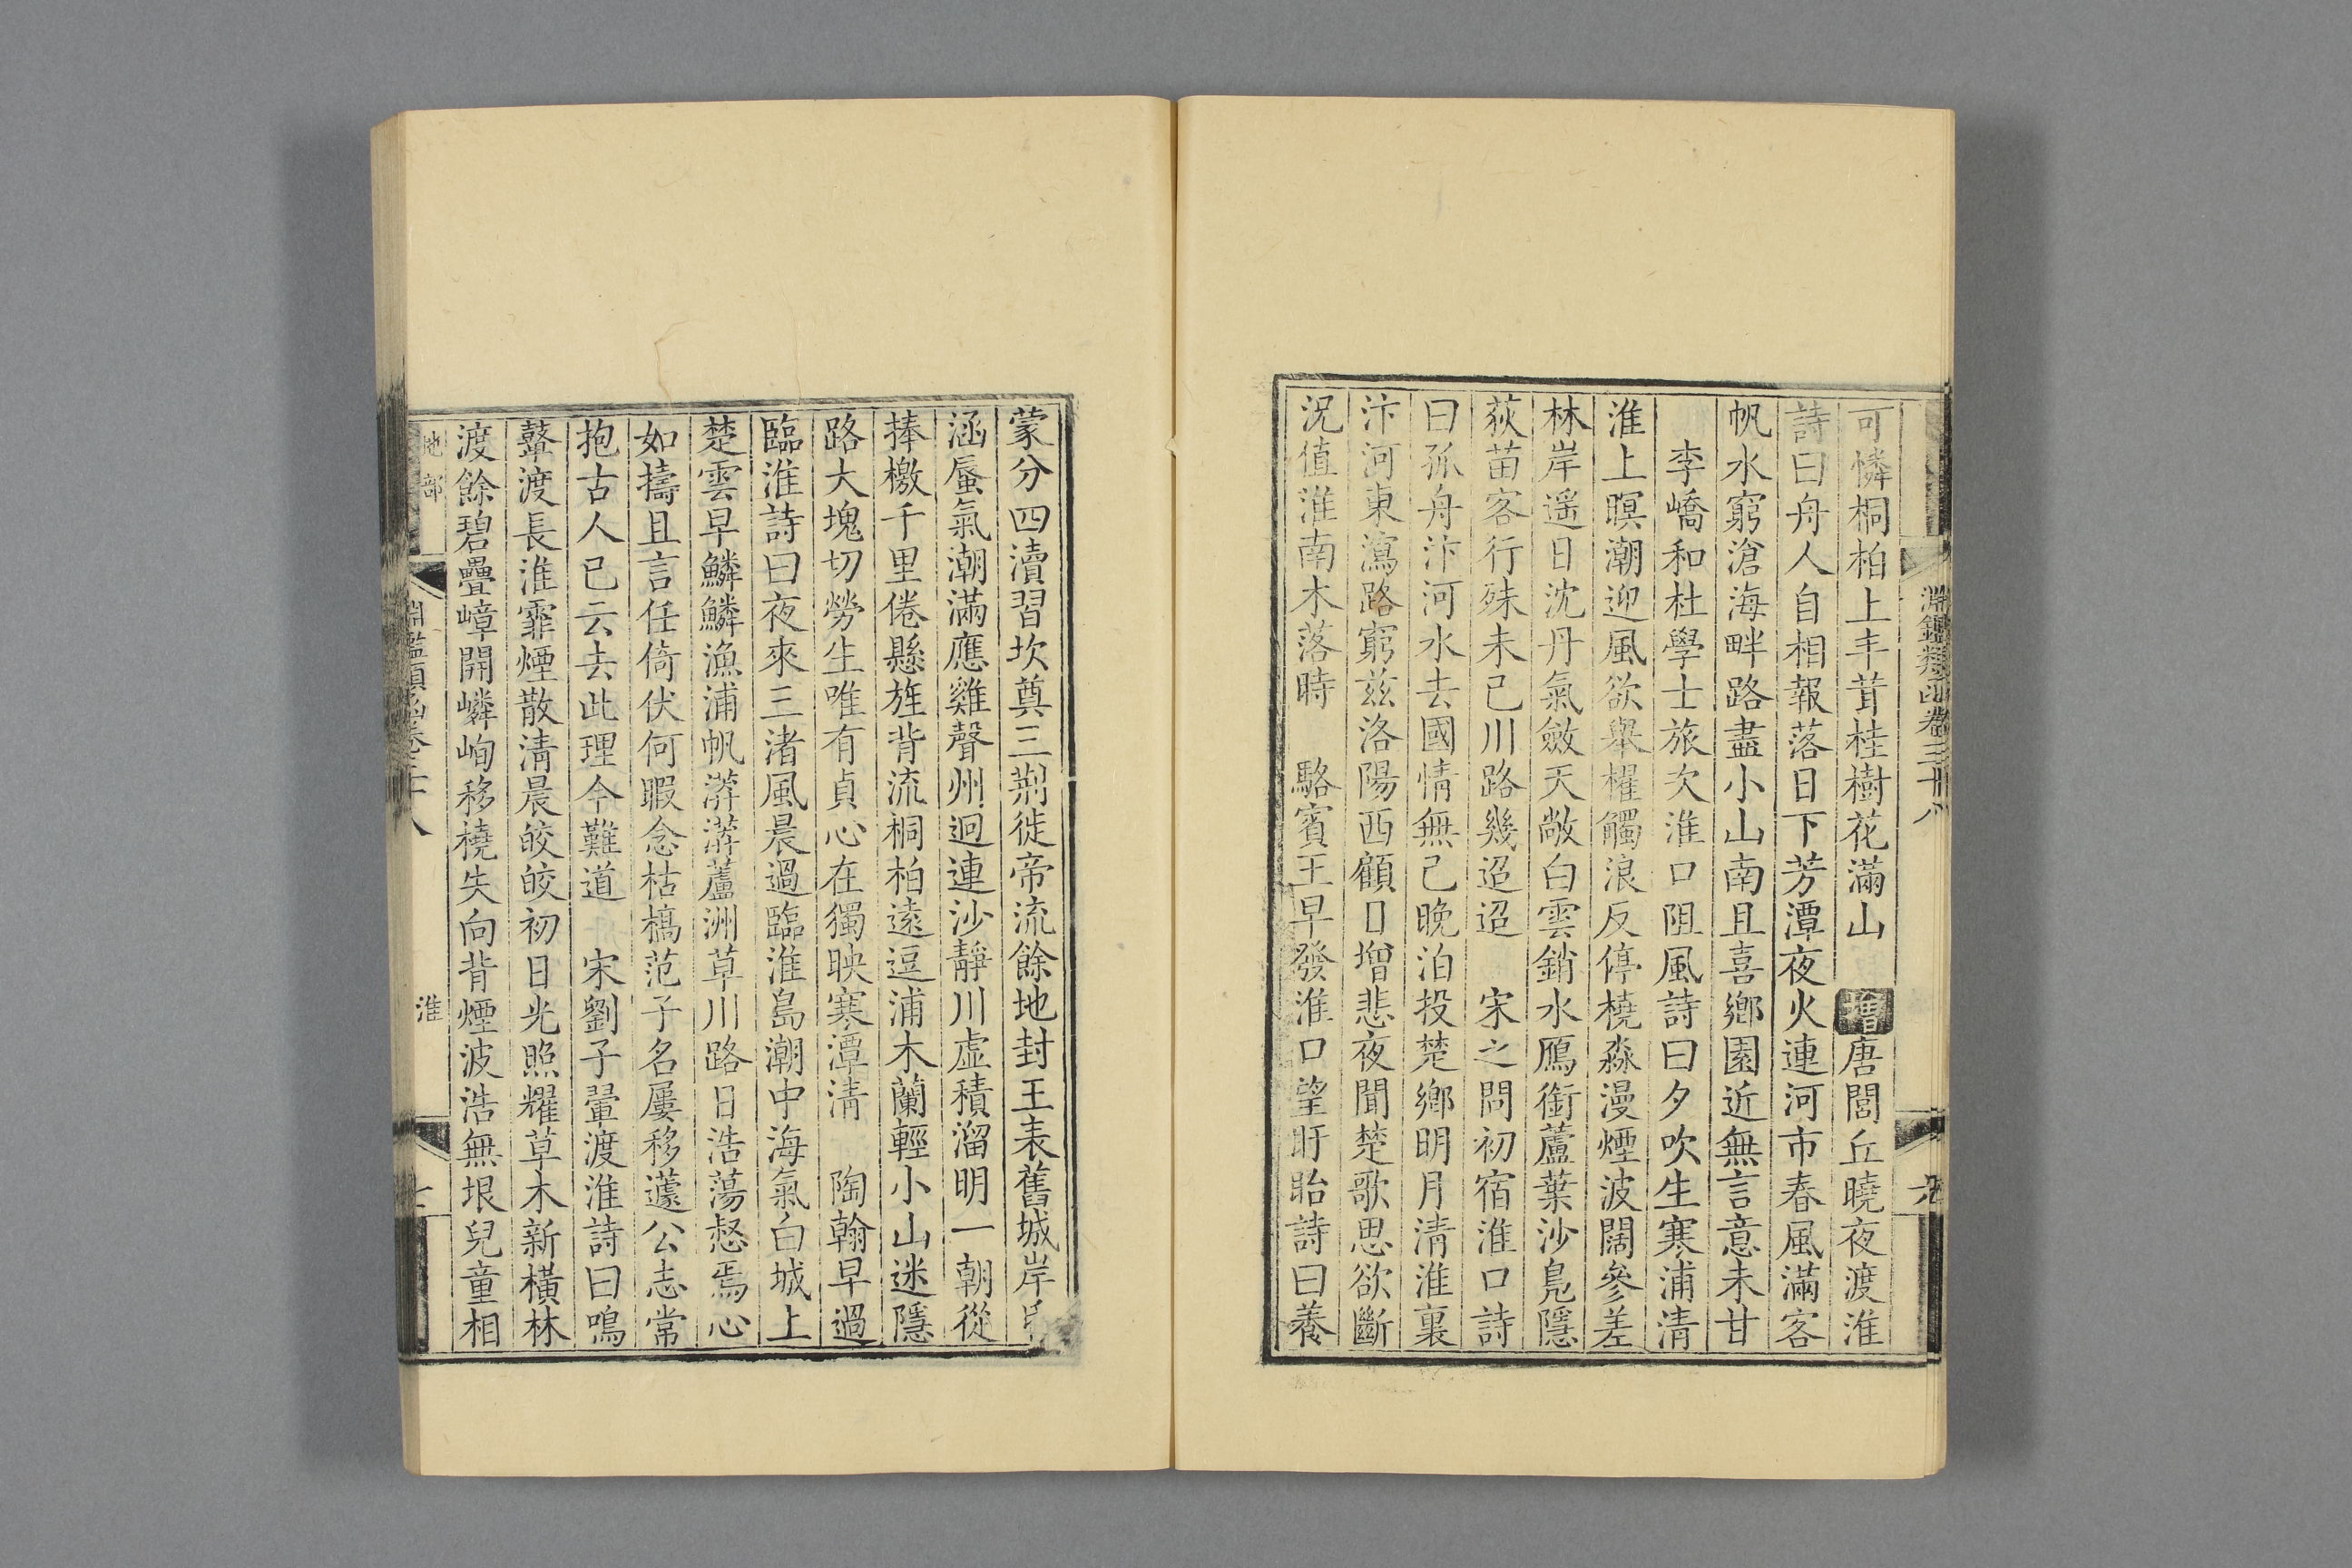 淵鑑類函卷三十八
可憐桐柏上丰茸桂樹花滿山 增唐閭丘曉夜渡淮
詩曰舟人自相報落日下芳潭夜火連河市春風滿客
帆水窮滄海畔路盡小山南且喜鄉園近無言意未甘
李嶠和杜學士旅次淮口阻風詩曰夕吹生寒浦清
淮上暝潮迎風欲舉櫂觸浪反停橈淼漫煙波闊參差
林岸遥日沈丹氣斂天敞白雲銷水鴈銜蘆葉沙鳧隱
荻苗客行殊未已川路幾迢迢 宋之問初宿淮口詩
曰孤舟汴河水去國情無已晚泊投楚鄉明月清淮裏
汴河東瀉路窮兹洛陽西顧日增悲夜聞楚歌思欲斷
況值淮南木落時 駱賓王早發淮口望盱眙詩曰養
蒙分四瀆習坎奠三荆徙帝流餘地封王表舊城岸
涵蜃氣潮滿應雞聲州迥連沙靜川虛積溜明一朝從
捧檄千里倦懸旌背流桐柏遠逗浦木蘭輕小山迷隱
路大塊切勞生唯有貞心在獨映寒潭淸 陶翰早過
臨淮詩曰夜來三渚風晨過臨淮島潮中海氣白城上
楚雲早鱗鱗漁浦帆漭漭蘆洲草川路日浩蕩惄焉心
如擣且言任倚伏何暇念枯槁范子名屢移蘧公志常
抱古人已云去此理今難道 宋劉子翬渡淮詩曰鳴
鼙渡長淮霏煙散淸晨皎皎初日光照耀草木新橫林
渡餘碧疊嶂開嶙峋移橈失向背煙波浩無垠兒童相
地部
淵鑑類函卷三十八
淮